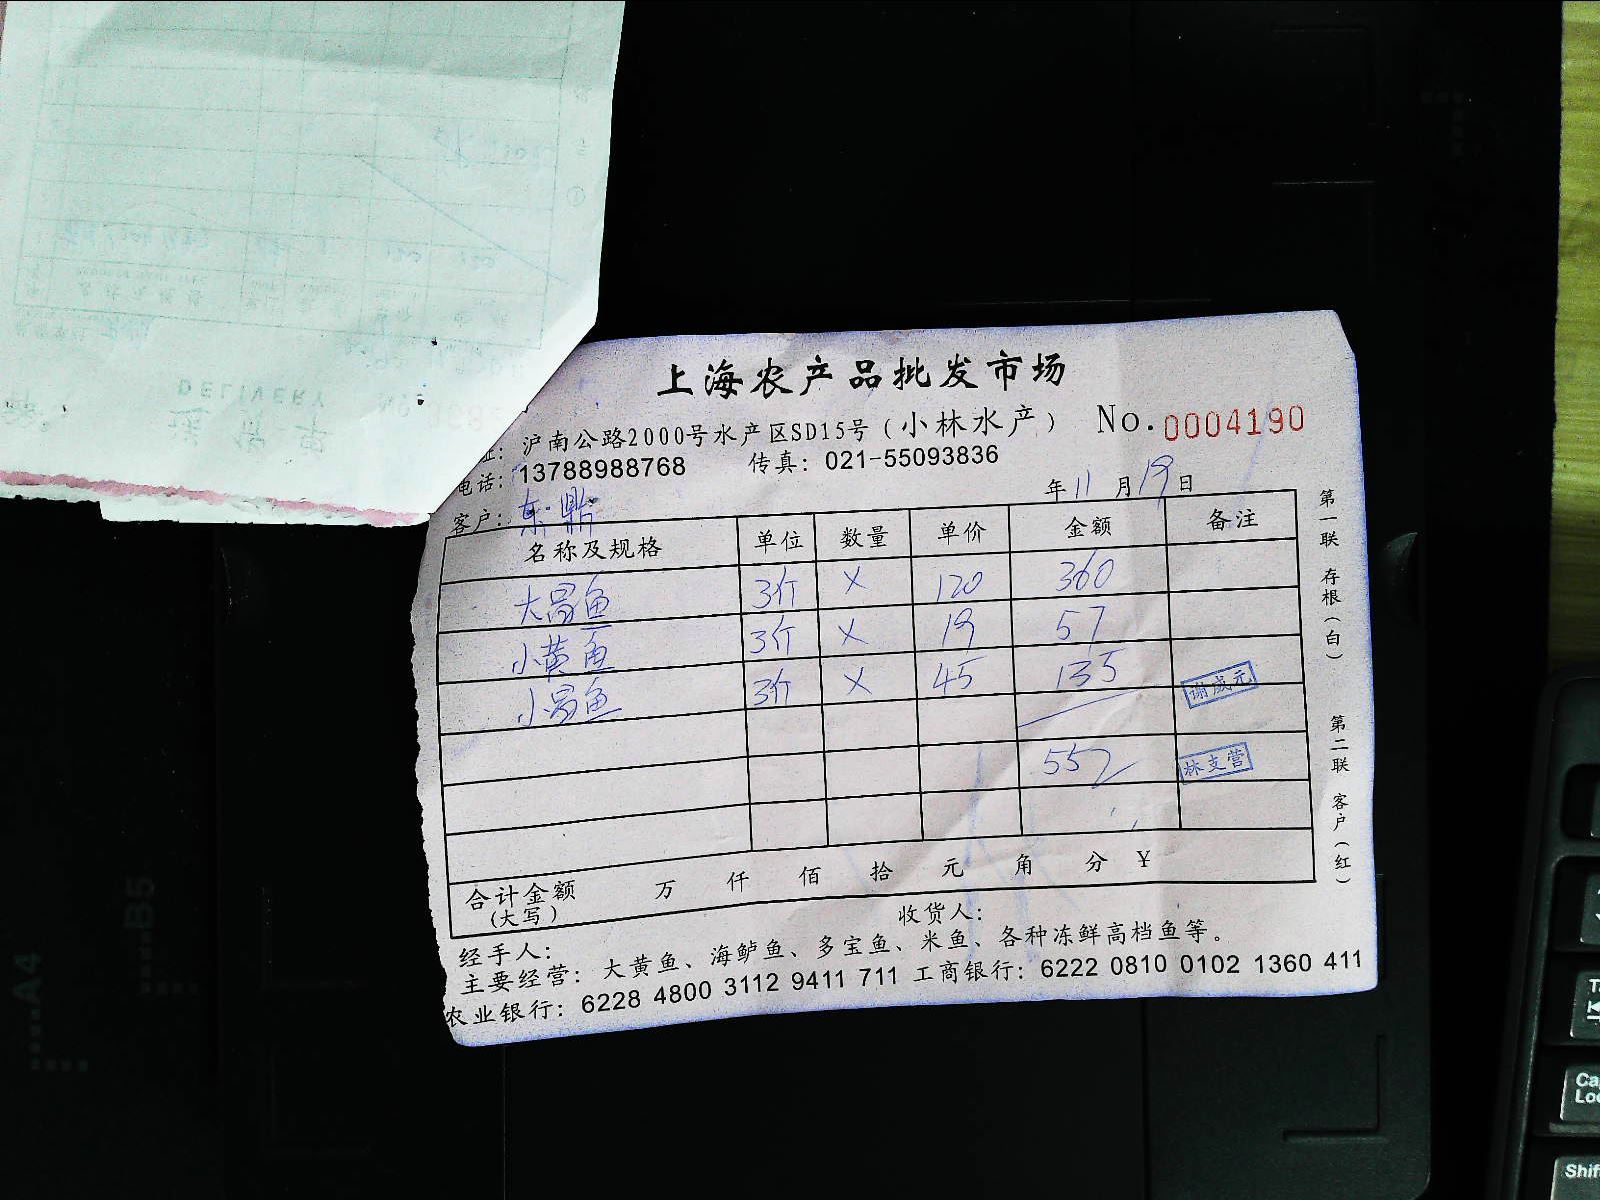 上海农产品批发市场
址: 沪南公路2000号水产区SD15号(小林水产) No.0004190
电话: 13788988768 传真: 021-55093836
年 11 月 19 日
客户: 东鼎
名称及规格 单位 数量 单价 金额 备注
大昌鱼 3斤 × 120 360
小黄鱼 3斤 × 19 57
小昌鱼 3斤 × 45 135
谢成元
552 林支营
合计金额 万 仟 佰 拾 元 角 分 ¥
(大写)
收货人:
经手人:
主要经营: 大黄鱼、海鲈鱼、多宝鱼、米鱼、各种冻鲜高档鱼等。
农业银行: 6228 4800 3112 9411 711 工商银行: 6222 0810 0102 1360 411
第一联 存根(白)
第二联 客户(红)
DELIVERY
A4
B5
Shift